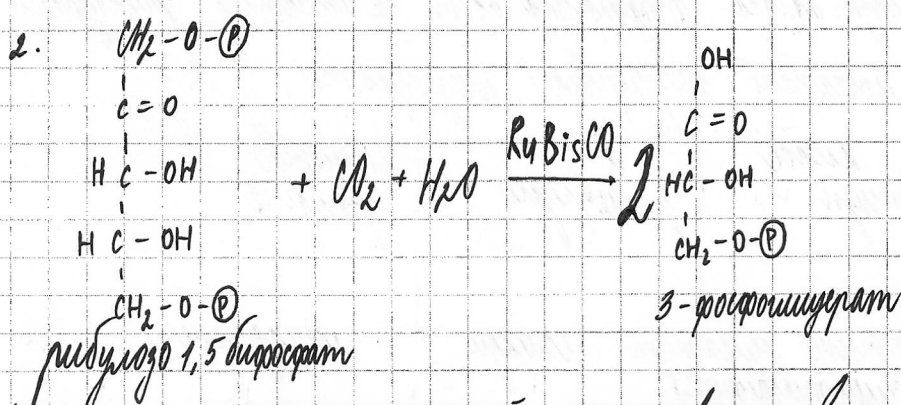 2.
CH2 - O - P
C = O
H C - OH
H C - OH
CH2 - O - P
рибулозо 1,5 бифосфат
+ CO2 + H2O
RuBisCO
2
OH
C = O
HC - OH
CH2 - O - P
3-фосфоглицерат